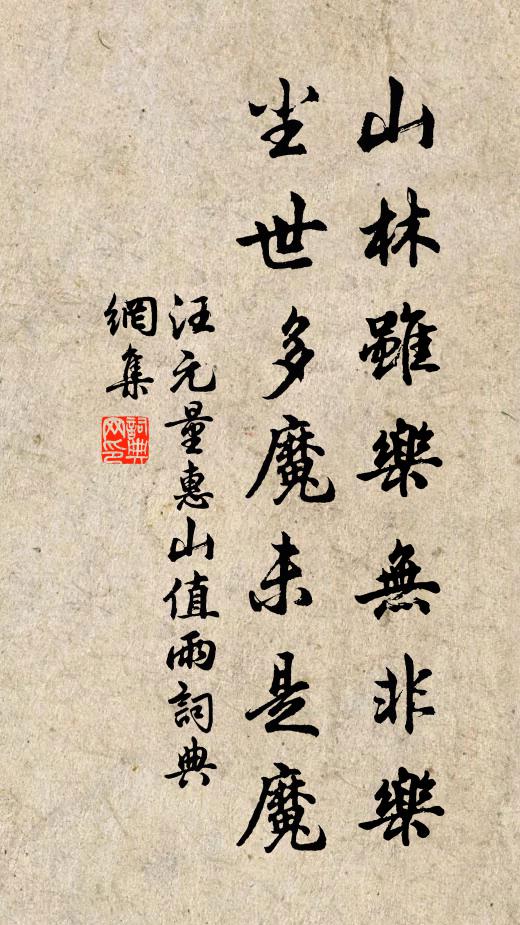 山林雖樂無非樂
尘世多魔未是魔
汪元量惠山值雨詞典
網集
詞典网印